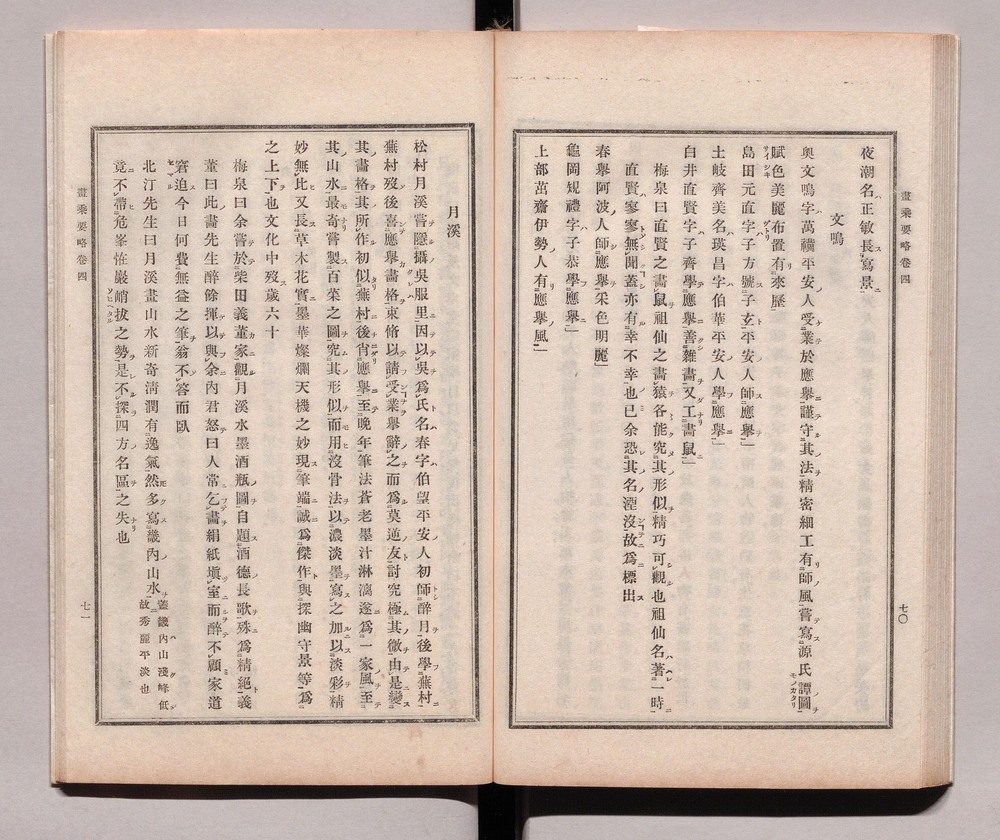 畫乘要略卷四
夜潮名正敏長寫景
文鳴
奥文鳴字萬礥平安人受業於應擧謹守其法精密細工有師風嘗寫源氏譚圖
賦色美麗布置有來歷
島田元直字子方號子玄平安人師應擧」
土岐齊美名瑛昌字伯華平安人學應擧」
白井直賢字子齊學應擧善雜畫又工畫鼠」
梅泉曰直賢之畫鼠祖仙之畫猿各能究其形似精巧可觀也祖仙名著一時
直賢寥寥無聞蓋亦有幸不幸也已余恐其名湮沒故爲標出
春擧阿波人師應擧采色明麗」
龜岡規禮字子恭學應擧」
上部茁齋伊勢人有應擧風」
七〇
月溪
松村月溪嘗隱攝吳服里因以吳爲氏名春字伯望平安人初師醉月後學蕪村
蕪村歿後喜應擧畫格束脩以請受業擧辭之而爲莫逆友討究極其微由是變
其畫格其所作初似蕪村後肖應擧至晩年筆法蒼老墨汁淋漓遂爲一家風至
其山水最奇嘗製百菜之圖究其形似而用沒骨法以濃淡墨寫之加以淡彩精
妙無比又長草木花實墨華燦爛天機之妙現筆端誠爲傑作與探幽守景等爲
之上下也文化中歿歲六十
梅泉曰余嘗於柴田義董家觀月溪水墨酒瓶圖自題酒德長歌殊爲精絕義
董曰此畫先生醉餘揮以與余內君怒曰人常乞畫絹紙塡室而醉不顧家道
窘迫今日何費無益之筆翁不答而臥
北汀先生曰月溪畫山水新奇淸潤有逸氣然多寫畿內山水蓋畿內山淺峰低故秀麗平淡也
竟不帶危峯怪巖峭拔之勢是不探四方名區之失也
畫乘要略卷四
七一